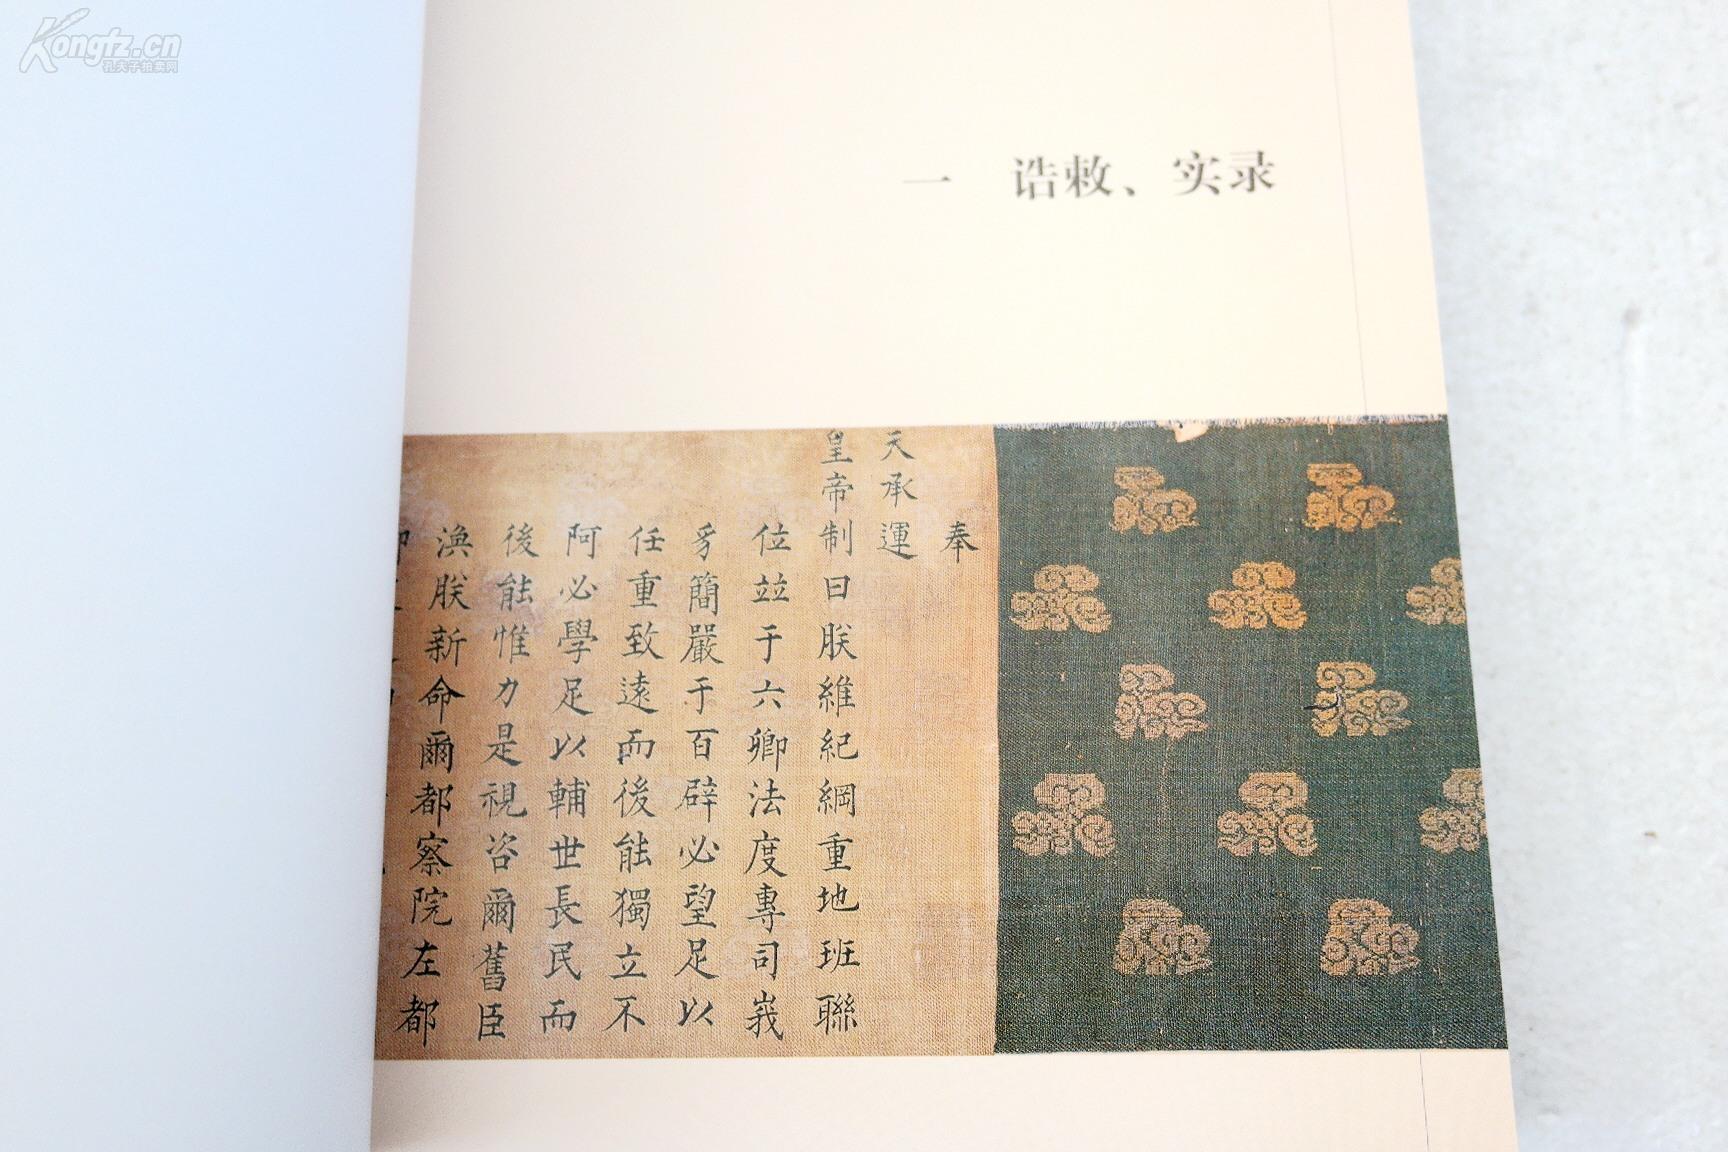 Kongfz.cn
孔夫子拍卖网
一 诰敕、实录
奉
天承運
皇帝制曰朕維紀綱重地班聯
位並于六卿法度專司峩
豸簡嚴于百辟必望足以
任重致遠而後能獨立不
阿必學足以輔世長民而
後能惟力是視咨爾舊臣
渙朕新命爾都察院左都